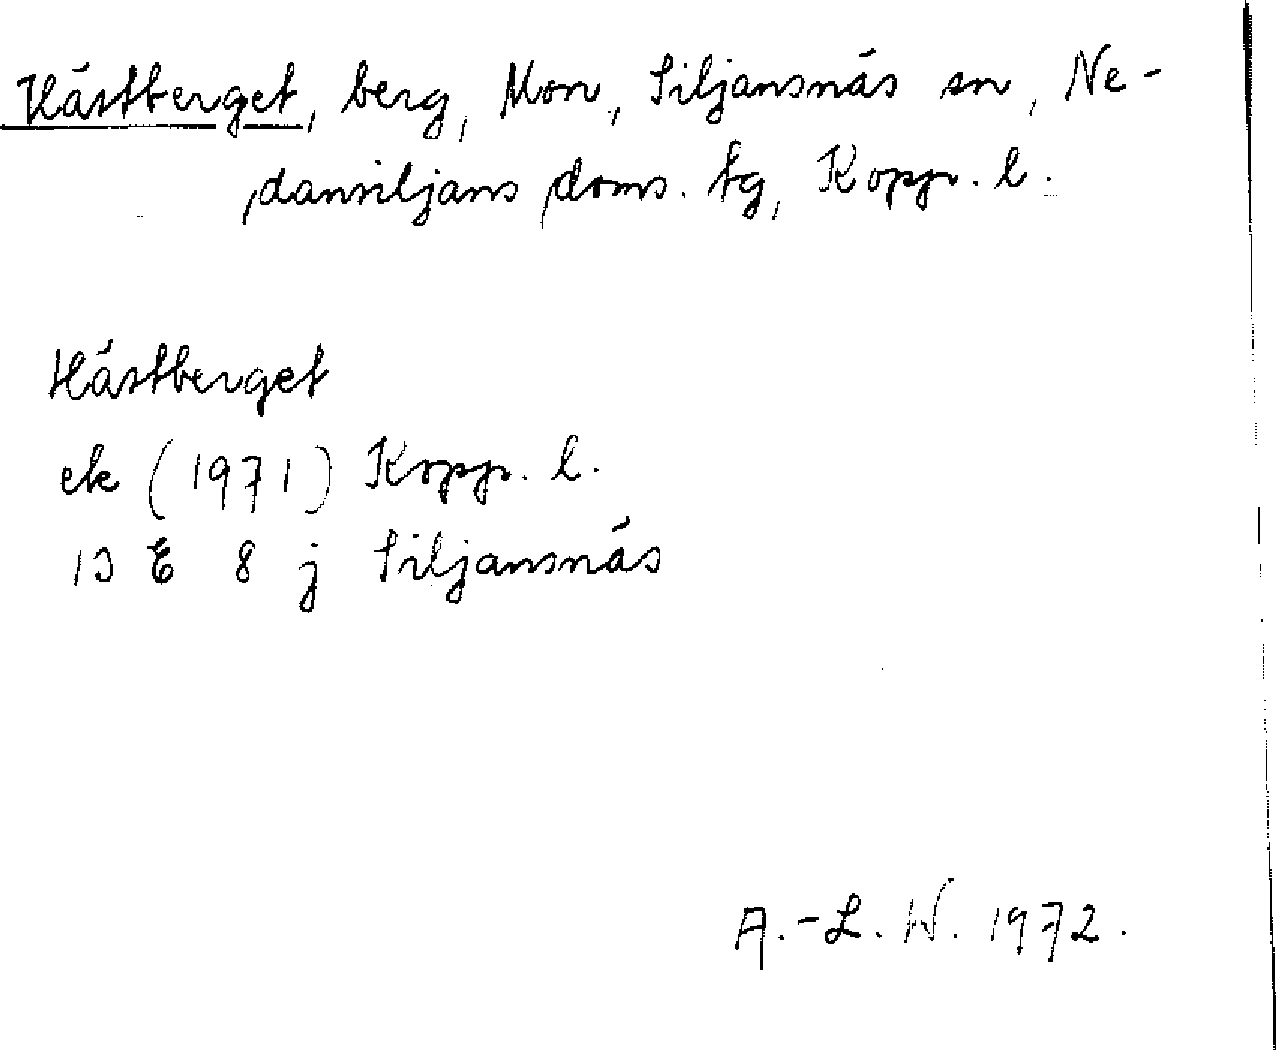 Hästberget, berg, Mon, Siljansnäs sn, Ne-
dansiljans doms. tg, Kopp. l.
Hästberget
ek (1971) Kopp. l.
13 E 8 j Siljansnäs
A.-L. W. 1972.